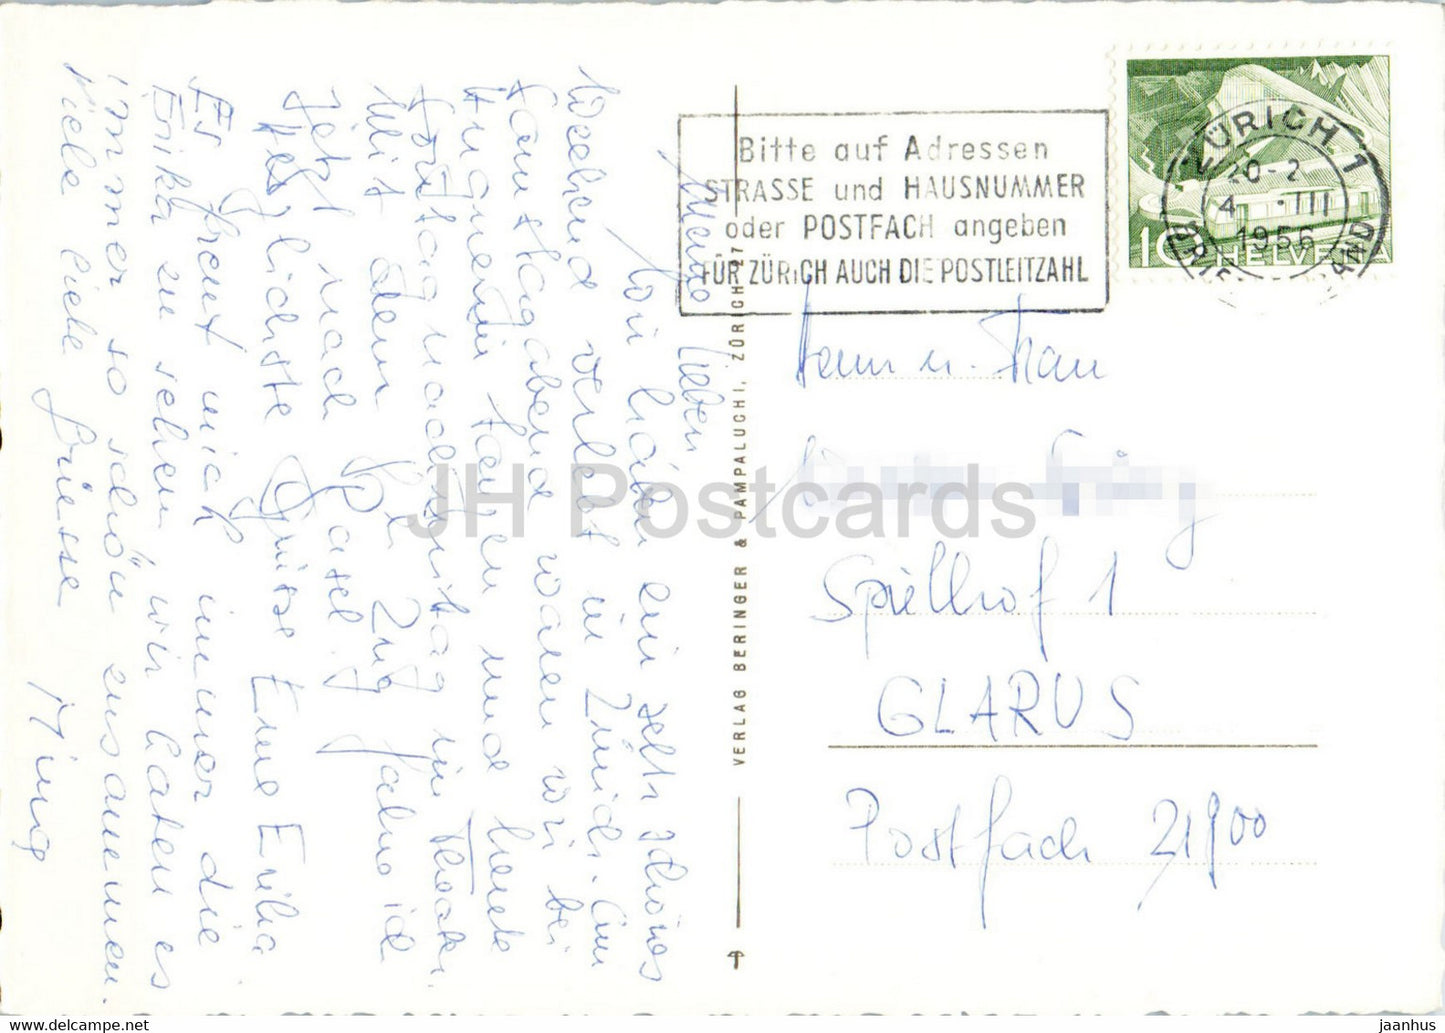 Meine lieben
Wir haben ein sehr schönes
Wochend verlebt in Zürich. Am
Samstagabend waren wir bei
tanzen und heute
Sontagnachmittag im Theater.
Mit dem Zug fahre ich
jetzt nach Basel.
Herzlichste Grüsse Eure Erika
Es freut mich immer die
Erika zu sehen, wir haten es
immer so schön zusammen.
Viele liebe Grüsse
VERLAG BERINGER & PAMPALUCHI, ZÜRICH 27
Bitte auf Adressen
STRASSE und HAUSNUMMER
oder POSTFACH angeben
FÜR ZÜRICH AUCH DIE POSTLEITZAHL
ZÜRICH 1
20-2
4. III
1956
BRIEFVERSAND
10 HELVETIA
Herrn u. Frau
Spielhof 1
GLARUS
Postfach 21900
JH Postcards
jaanhus